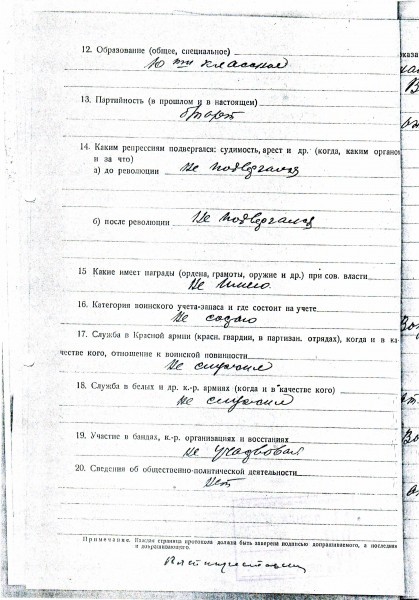 12. Образование (общее, специальное)
10 ти классное
13. Партийность (в прошлом и в настоящем)
14. Каким репрессиям подвергался: судимость, арест и др. (когда, каким органом
и за что)
а) до революции Не подвергался
б) после революции Не подвергался
15 Какие имеет награды (ордена, грамоты, оружие и др.) при сов. власти
Не имею
16. Категория воинского учета-запаса и где состоит на учете
Не состою
17. Служба в Красной армии (красн. гвардии, в партизан. отрядах), когда и в ка-
честве кого, отношение к воинской повинности
Не служил
18. Служба в белых и др. к.-р. армиях (когда и в качестве кого)
Не служил
19. Участие в бандах, к.-р. организациях и восстаниях
не участвовал
20. Сведения об общественно-политической деятельности
Нет
Примечание. Каждая страница протокола должна быть заверена подписью допрашиваемого, а последняя
и допрашивающего.